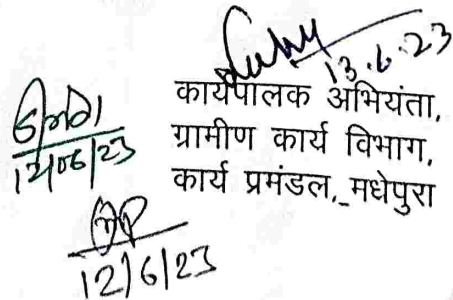 13.6.23
कार्यपालक अभियंता,
ग्रामीण कार्य विभाग,
कार्य प्रमंडल, मधेपुरा
12/06/23
12/6/23